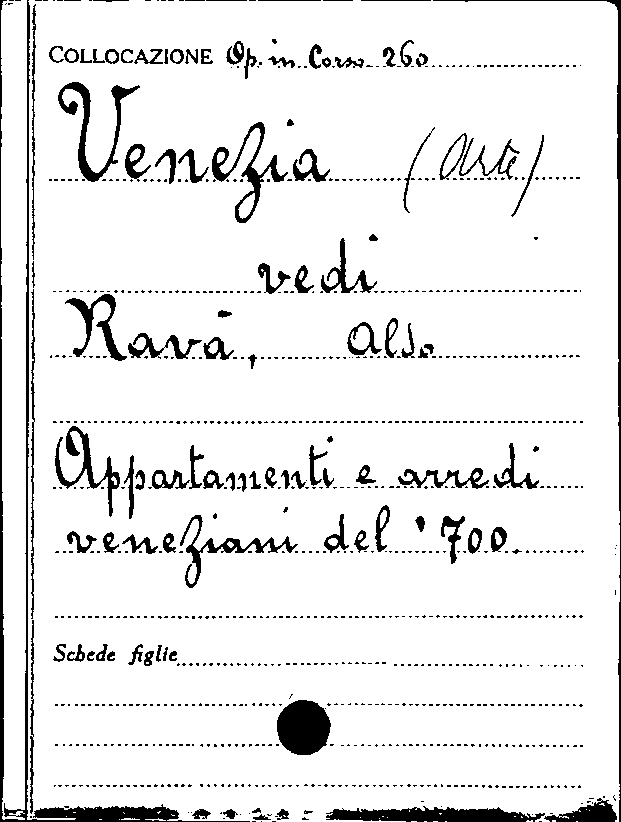 COLLOCAZIONE Op. in Corso 260
Venezia (arte)
vedi
Ravà, Aldo
Appartamenti e arredi
veneziani del '700.
Schede figlie